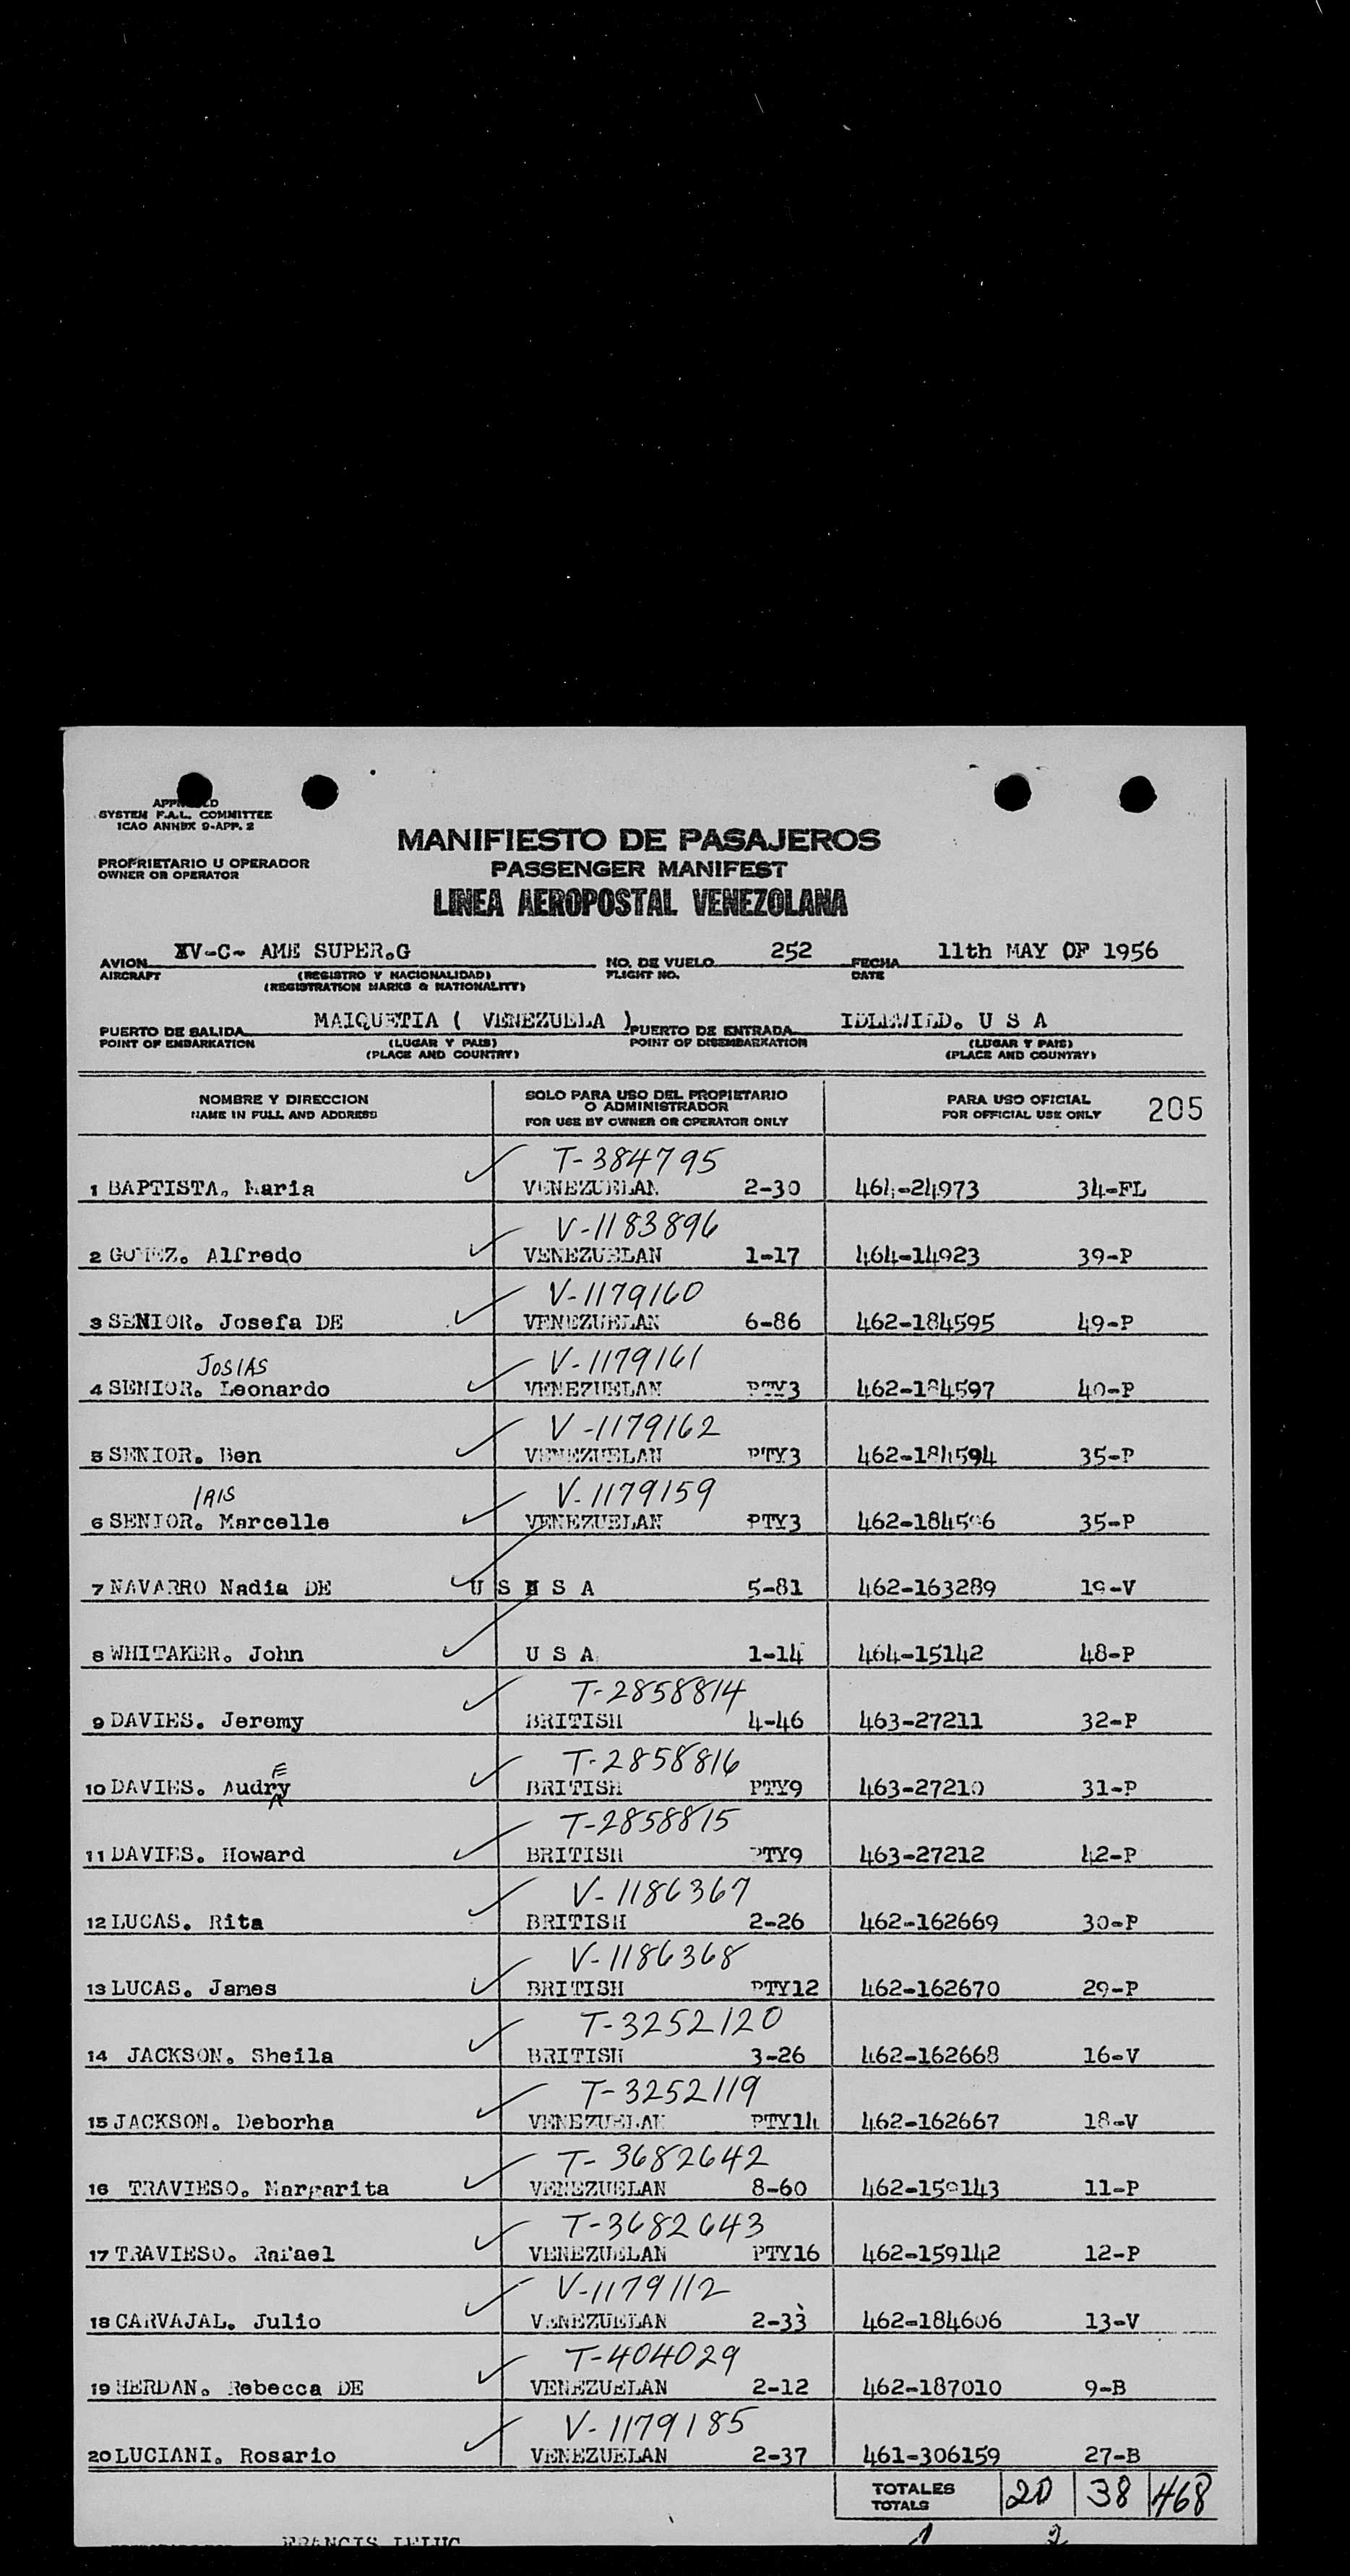 SYSTEM F.A.L. COMMITTEE
ICAO ANNEX 9-APP. 2
MANIFIESTO DE PASAJEROS
PROPRIETARIO U OPERADOR
OWNER OR OPERATOR
PASSENGER MANIFEST
LINEA AEROPOSTAL VENEZOLANA
AVION YV-C- AME SUPER.G NO. DE VUELO 252 FECHA 11th MAY OF 1956
AIRCRAFT (REGISTRO Y NACIONALIDAD) FLIGHT NO. DATE
(REGISTRATION MARKS & NATIONALITY)
PUERTO DE SALIDA MAIQUETIA ( VENEZUELA ) PUERTO DE ENTRADA IDLEWILD. U S A
POINT OF EMBARKATION (LUGAR Y PAIS) POINT OF DISEMBARKATION (LUGAR Y PAIS)
(PLACE AND COUNTRY) (PLACE AND COUNTRY)
NOMBRE Y DIRECCION SOLO PARA USO DEL PROPIETARIO O ADMINISTRADOR PARA USO OFICIAL
NAME IN FULL AND ADDRESS FOR USE BY OWNER OR OPERATOR ONLY FOR OFFICIAL USE ONLY 205
T-384795
1 BAPTISTA. Maria VENEZUELAN 2-30 464-24973 34-FL
V-1183896
2 GOMEZ. Alfredo VENEZUELAN 1-17 464-14923 39-P
V-1179160
3 SENIOR. Josefa DE VENEZUELAN 6-86 462-184595 49-P
JOSIAS V-1179161
4 SENIOR. Leonardo VENEZUELAN PTY3 462-184597 40-P
V-1179162
5 SENIOR. Ben VENEZUELAN PTY3 462-184594 35-P
IRIS V-1179159
6 SENIOR. Marcelle VENEZUELAN PTY3 462-184596 35-P
7 NAVARRO Nadia DE U S A 5-81 462-163289 19-V
8 WHITAKER. John U S A 1-14 464-15142 48-P
T-2858814
9 DAVIES. Jeremy BRITISH 4-46 463-27211 32-P
E T-2858816
10 DAVIES. Audry BRITISH PTY9 463-27210 31-P
T-2858815
11 DAVIES. Howard BRITISH PTY9 463-27212 42-P
V-1186367
12 LUCAS. Rita BRITISH 2-26 462-162669 30-P
V-1186368
13 LUCAS. James BRITISH PTY12 462-162670 29-P
T-3252120
14 JACKSON. Sheila BRITISH 3-26 462-162668 16-V
T-3252119
15 JACKSON. Deborha VENEZUELAN PTY14 462-162667 18-V
T-3682642
16 TRAVIESO. Margarita VENEZUELAN 8-60 462-159143 11-P
T-3682643
17 TRAVIESO. Rafael VENEZUELAN PTY16 462-159142 12-P
V-1179112
18 CARVAJAL. Julio VENEZUELAN 2-33 462-184606 13-V
T-404029
19 HERDAN. Rebecca DE VENEZUELAN 2-12 462-187010 9-B
V-1179185
20 LUCIANI. Rosario VENEZUELAN 2-37 461-306159 27-B
TOTALES 20 38 468
TOTALS
1 2